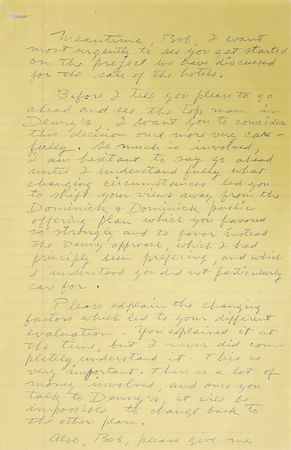 Meantime, Bob, I want
most urgently to see you get started
on the project we have discussed
for the sale of the hotels.
Before I tell you please to go
ahead and see the top man in
Denny's, I want you to consider
this decision once more very care-
fully. So much is involved,
I am hesitant to say go ahead
until I understand fully what
changing circumstances led you
to shift your views away from the
Dominick & Dominick public
offering plan which you favored
so strongly and to favor instead
the Denny approach, which I had
been prefering, and which
I understood you did not particularly
care for.
Please explain the changing
factors which led to your different
evaluation. You explained it at
the time, but I never did com-
pletely understand it. This is
very important. There is a lot of
money involved, and once you
talk to Denny's, it will be
impossible to change back to
the other plan.
Also, Bob, please give me